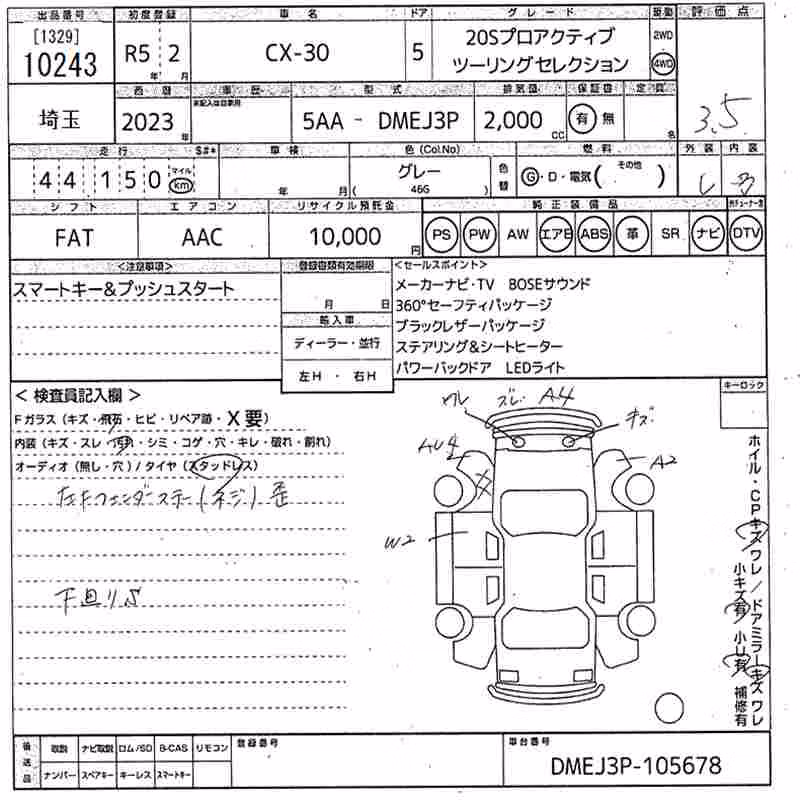 出品番号 初度登録 車名 ドア グレード 駆動 評価点
[1329]
10243 R5 2 年 月 CX-30 5 20Sプロアクティブ 2WD
ツーリングセレクション 4WD
西暦 車歴 型式 排気量 保証書 定員
埼玉 2023 年 未記入は自家用 5AA - DMEJ3P 2,000 CC 有 無 名 3.5
走行 S#* 車検 色(Col.No) 燃料 外装 内装
44150 マイル km 年 月 グレー 色替 G・D・電気( その他 )
( 46G )
シフト エアコン リサイクル預託金 純正装備品
FAT AAC 10,000 円 PS PW AW エアB ABS 革 SR ナビ DTV
<注意事項> 登録書類有効期限 <セールスポイント>
スマートキー&プッシュスタート メーカーナビ・TV BOSEサウンド
月 日 360°セーフティパッケージ
輸入車 ブラックレザーパッケージ
ディーラー・並行 ステアリング&シートヒーター
左H・右H パワーバックドア LEDライト
<検査員記入欄> キーロック
Fガラス(キズ・飛石・ヒビ・リペア跡・X要)
内装(キズ・スレ・汚れ・シミ・コゲ・穴・キレ・破れ・割れ)
オーディオ(無し・穴)/タイヤ(スタッドレス)
左Fフェンダーステー(ネジ)歪
下廻りS
ワレ ズレ A4 キズ
AU4 X A2
W2
ホイル・CPキズワレ/ドアミラーキズワレ
小キズ有 小U有 補修有
後送品 取説 ナビ取説 ロム/SD B-CAS リモコン 登録番号 車台番号
ナンバー スペアキー キーレス スマートキー DMEJ3P-105678